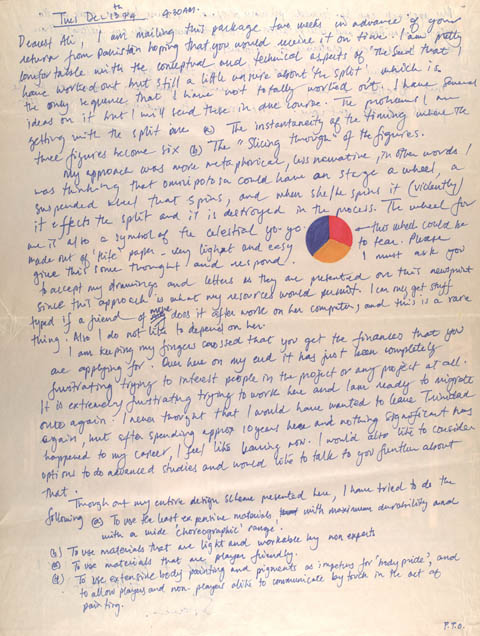 Tues Dec 13th '94 4:30AM.
Dearest Ali, I am mailing this package two weeks in advance of your
return from pakistan hoping that you would receive it on time. I am pretty
comfortable with the conceptual and technical aspects of "The Sud" that I
have worked out but still a little unsure about 'the split' which is
the only sequence that I have not totally worked out. I have several
ideas on it but I will send these in due course. The problems I am
getting with the split are (a) The instantaneity of the timing where the
three figures become six (b) The "slicing through" of the figures.
My approach was more metaphorical, less narrative, in other words I
was thinking that omnipotosa could have on stage a wheel, a
suspended wheel that spins, and when she/he spins it (violently)
it effects the split and it is destroyed in the process. The wheel for
me is also a symbol of the celestial yo-yo. this wheel could be
made out of 'kite' paper - very light and easy to tear. Please
give this some thought and respond. I must ask you
to accept my drawings and letters as they are presented on this newsprint
since this approach is what my resources would permit. I can my get stuff
typed if a friend of mine does it after work on her computer, and this is a rare
thing. Also I do not like to depend on her.
I am keeping my fingers crossed that you get the finances that you
are applying for. Over here on my end it has just been completely
frustrating trying to interest people in the project or any project at all.
It is extremely frustrating trying to work here and I am ready to migrate
once again. I never thought that I would have wanted to leave Trinidad
again, but after spending approx 10 years here and nothing significant has
happened to my career, I feel like leaving now. I would also like to consider
options to do advanced studies and would like to talk to you further about
that.
Throughout my entire design scheme presented here, I have tried to do the
following (a) To use the least expensive materials, with maximum durability and
with a wide 'choreographic' range.
(b) To use materials that are light and workable by non experts
(c) To use materials that are player friendly.
(d) To use extensive body painting and pigments as impetus for 'body pride', and
to allow players and non-players alike to communicate by touch in the act of
painting.
P.T.O.